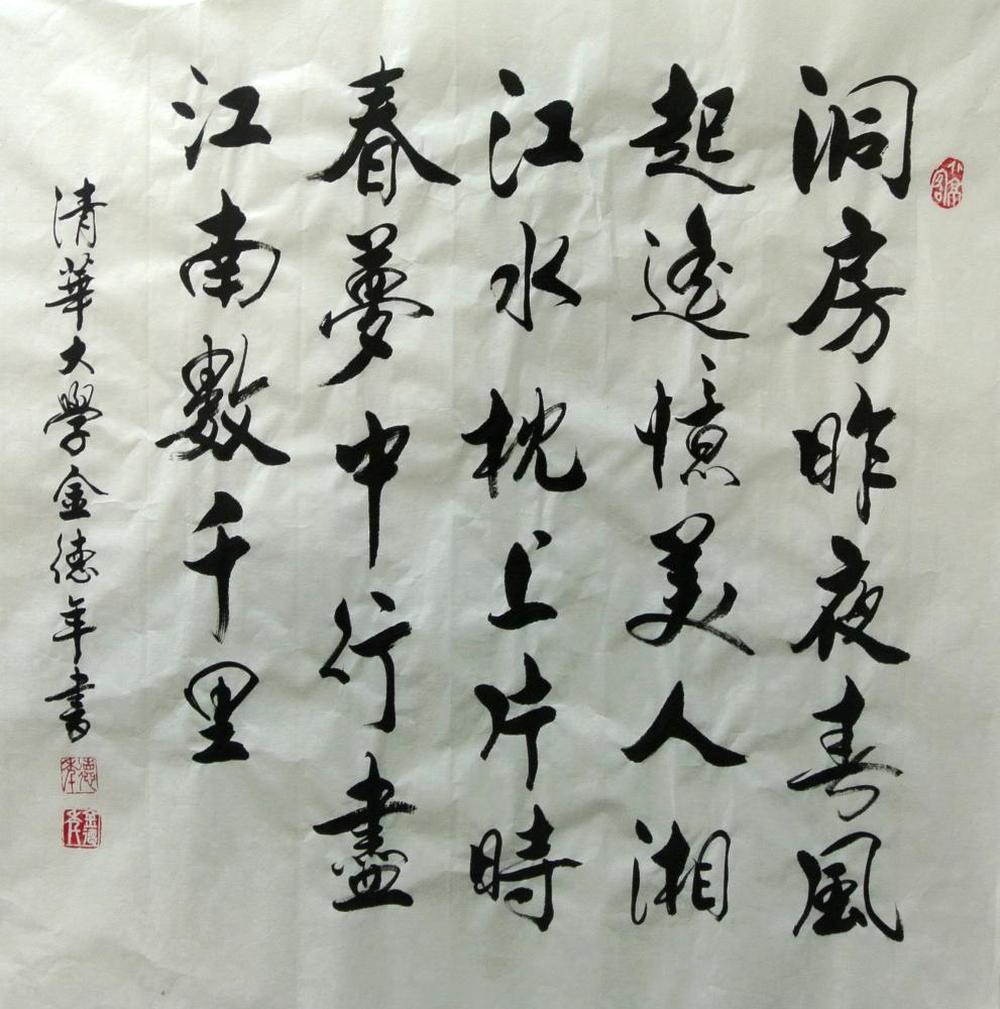 洞房昨夜春風
起遙憶美人湘
江水枕上片時
春夢中行盡
江南數千里
清華大學金德年書